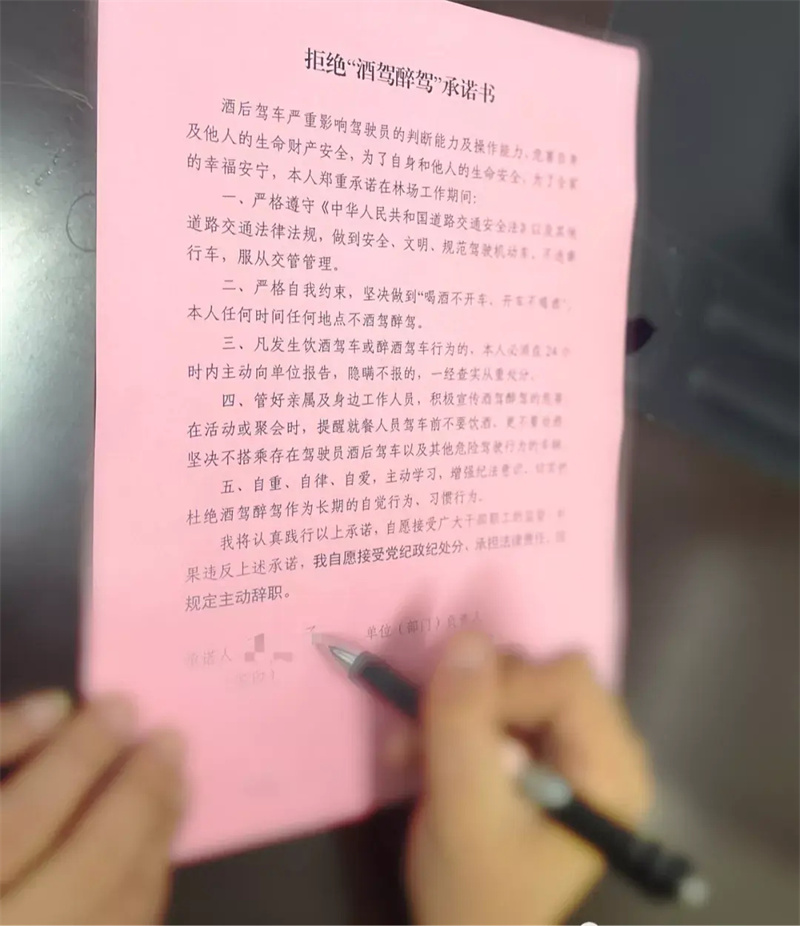 拒绝“酒驾醉驾”承诺书
酒后驾车严重影响驾驶员的判断能力及操作能力，危害自身
及他人的生命财产安全，为了自身和他人的生命安全，为了全家
的幸福安宁，本人郑重承诺在林场工作期间：
一、严格遵守《中华人民共和国道路交通安全法》以及其他
道路交通法律法规，做到安全、文明、规范驾驶机动车，不违章
行车，服从交管管理。
二、严格自我约束，坚决做到“喝酒不开车，开车不喝酒”，
本人任何时间任何地点不酒驾醉驾。
三、凡发生饮酒驾车或醉酒驾车行为的，本人必须在24小
时内主动向单位报告，隐瞒不报的，一经查实从重处分。
四、管好亲属及身边工作人员，积极宣传酒驾醉驾的危害，
在活动或聚会时，提醒就餐人员驾车前不要饮酒，更不要
坚决不搭乘存在驾驶员酒后驾车以及其他危险驾驶行为的车辆。
五、自重、自律、自爱，主动学习，增强纪法意识，
杜绝酒驾醉驾作为长期的自觉行为、习惯行为。
我将认真践行以上承诺，自愿接受广大干部职工的监督，如
果违反上述承诺，我自愿接受党纪政纪处分、承担法律责任，
规定主动辞职。
承诺人 单位（部门）负责人